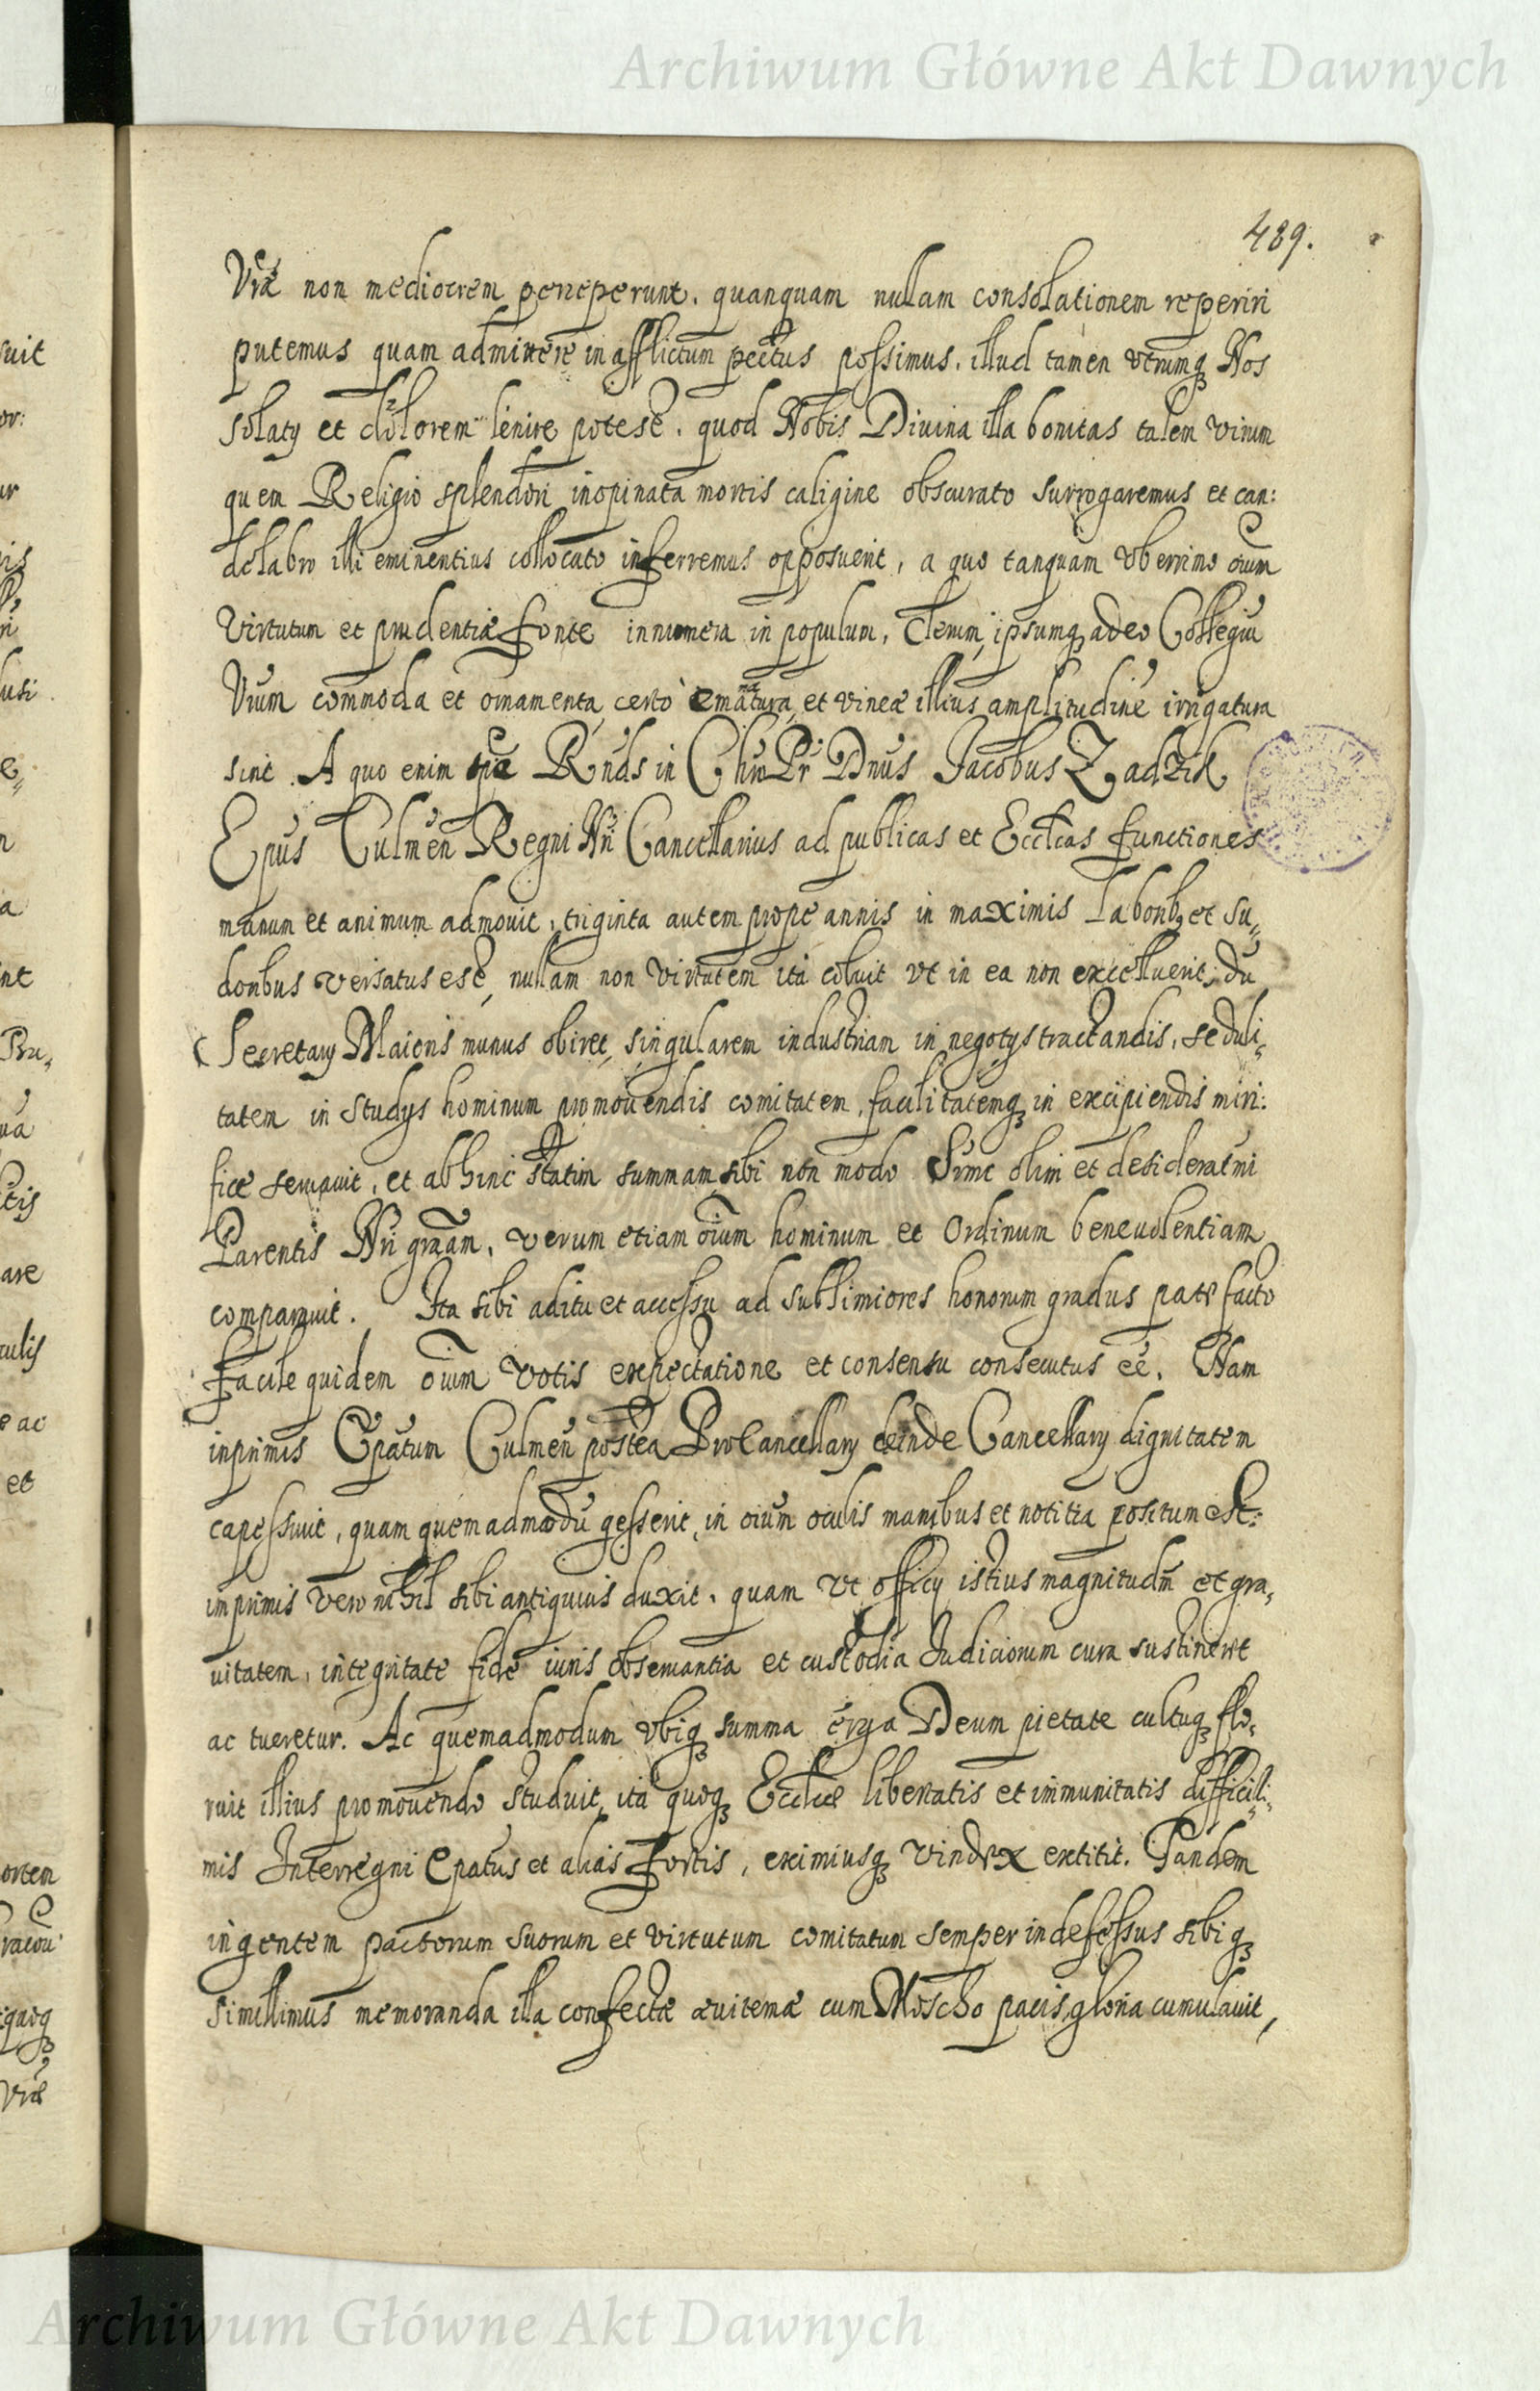 Archiwum Główne Akt Dawnych
489.
Vrae non mediocrem perceperunt. quanquam nullam consolationem reperiri
putemus quam admittere in afflictum pectus possimus. illud tamen utrumq Nos
solaty et dolorem lenire potest. quod Nobis Divina illa bonitas talem virum
quem Religio splendori inopinata mortis caligine obscurato surrogaremus et can:
delabro illi eminentius collocato inferremus opposuerit, a quo tanquam uberrimo oium
Virtutum et prudentiæ fonte innumera in populum, Clerum, ipsumq adeo Collegiu
Vrum commoda et ornamenta, certo ematura, et vineæ illius amplitudine irrigatura
sint. A quo enim Rnds in Chro Pr Dnus Jacobus Zadzik
Epus Culmen Regni Nri Cancellarius ad publicas et Ecclcas functiones
manum et animum admovit, triginta autem prope annis in maximis Laborib et su„
doribus versatus est, nullam non virtutem ita coluit ut in ea non excelluerit, du
Secretary Maioris munus obiret, singularem industriam in negotys tractandis, seduli„
tatem in studys hominum promovendis comitatem, facilitatemq in excipiendis miri:
fice servavit, et abhinc statim summam sibi non modo Srmc olim et desideratmi
Parentis Nri graam, verum etiam oium hominum et Ordinum benevolentiam
comparavit. Ita sibi aditu et accessu ad sublimiores honorum gradus patefacto
facile quidem oium votis expectatione et consensu consecutus eé. Nam
inprimis Epatum Culmen postea ProCancellary deinde Cancellary dignitatem
capessivit, quam quemadmodu gesserit, in oium oculis manibus et notitia positum est:
imprimis vero nihil sibi antiquius duxit. quam ut officy istius magnitudm et gra„
vitatem, integritate fide iuris observantia et custodia Judiciorum cura sustineret
ac tueretur. Ac quemadmodum ubiq summa erga Deum pietate cultuq flo„
ruit illius promovendo studuit, ita quoq Ecclæ libertatis et immunitatis difficili„
mis Interregni Epatus et alias fortis, eximiusq vindex extitit. Tandem
ingentem pactorum suorum et virtutum comitatum semper indefessus sibi q
simillimus memoranda illa confectæ æviternæ cum Moscho pacis gloria cumulavit,
Archiwum Główne Akt Dawnych